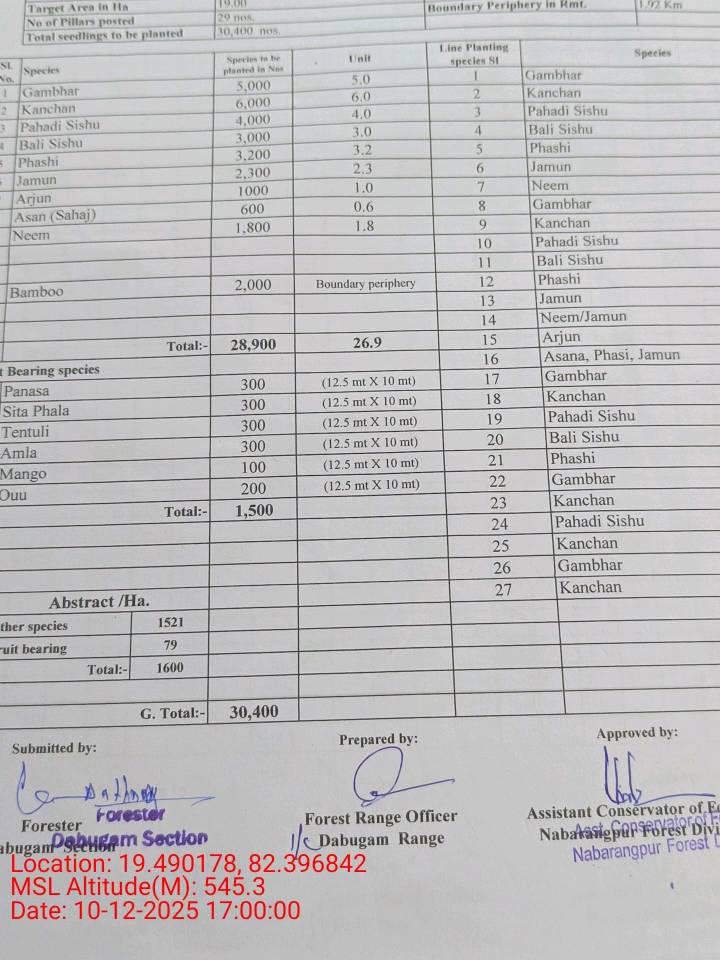 Target Area in Ha 19.00 Boundary Periphery in Rmt. 1.92 Km
No of Pillars posted 29 nos.
Total seedlings to be planted 30,400 nos.
SL No. Species Species to be planted in Nos Unit Line Planting species Sl Species
1 Gambhar 5,000 5.0 1 Gambhar
2 Kanchan 6,000 6.0 2 Kanchan
3 Pahadi Sishu 4,000 4.0 3 Pahadi Sishu
4 Bali Sishu 3,000 3.0 4 Bali Sishu
5 Phashi 3,200 3.2 5 Phashi
Jamun 2,300 2.3 6 Jamun
Arjun 1000 1.0 7 Neem
Asan (Sahaj) 600 0.6 8 Gambhar
Neem 1,800 1.8 9 Kanchan
10 Pahadi Sishu
11 Bali Sishu
Bamboo 2,000 Boundary periphery 12 Phashi
13 Jamun
14 Neem/Jamun
Total:- 28,900 26.9 15 Arjun
t Bearing species 16 Asana, Phasi, Jamun
Panasa 300 (12.5 mt X 10 mt) 17 Gambhar
Sita Phala 300 (12.5 mt X 10 mt) 18 Kanchan
Tentuli 300 (12.5 mt X 10 mt) 19 Pahadi Sishu
Amla 300 (12.5 mt X 10 mt) 20 Bali Sishu
Mango 100 (12.5 mt X 10 mt) 21 Phashi
Ouu 200 (12.5 mt X 10 mt) 22 Gambhar
Total:- 1,500 23 Kanchan
24 Pahadi Sishu
25 Kanchan
26 Gambhar
27 Kanchan
Abstract /Ha.
ther species 1521
ruit bearing 79
Total:- 1600
G. Total:- 30,400
Submitted by: Prepared by: Approved by:
Forester Forest Range Officer Assistant Conservator of Fo
Forester
abugam Section I/c Dabugam Range Nabarangpur Forest Divi
Dabugam Section
Asst. Conservator of F
Nabarangpur Forest D
Location: 19.490178, 82.396842
MSL Altitude(M): 545.3
Date: 10-12-2025 17:00:00